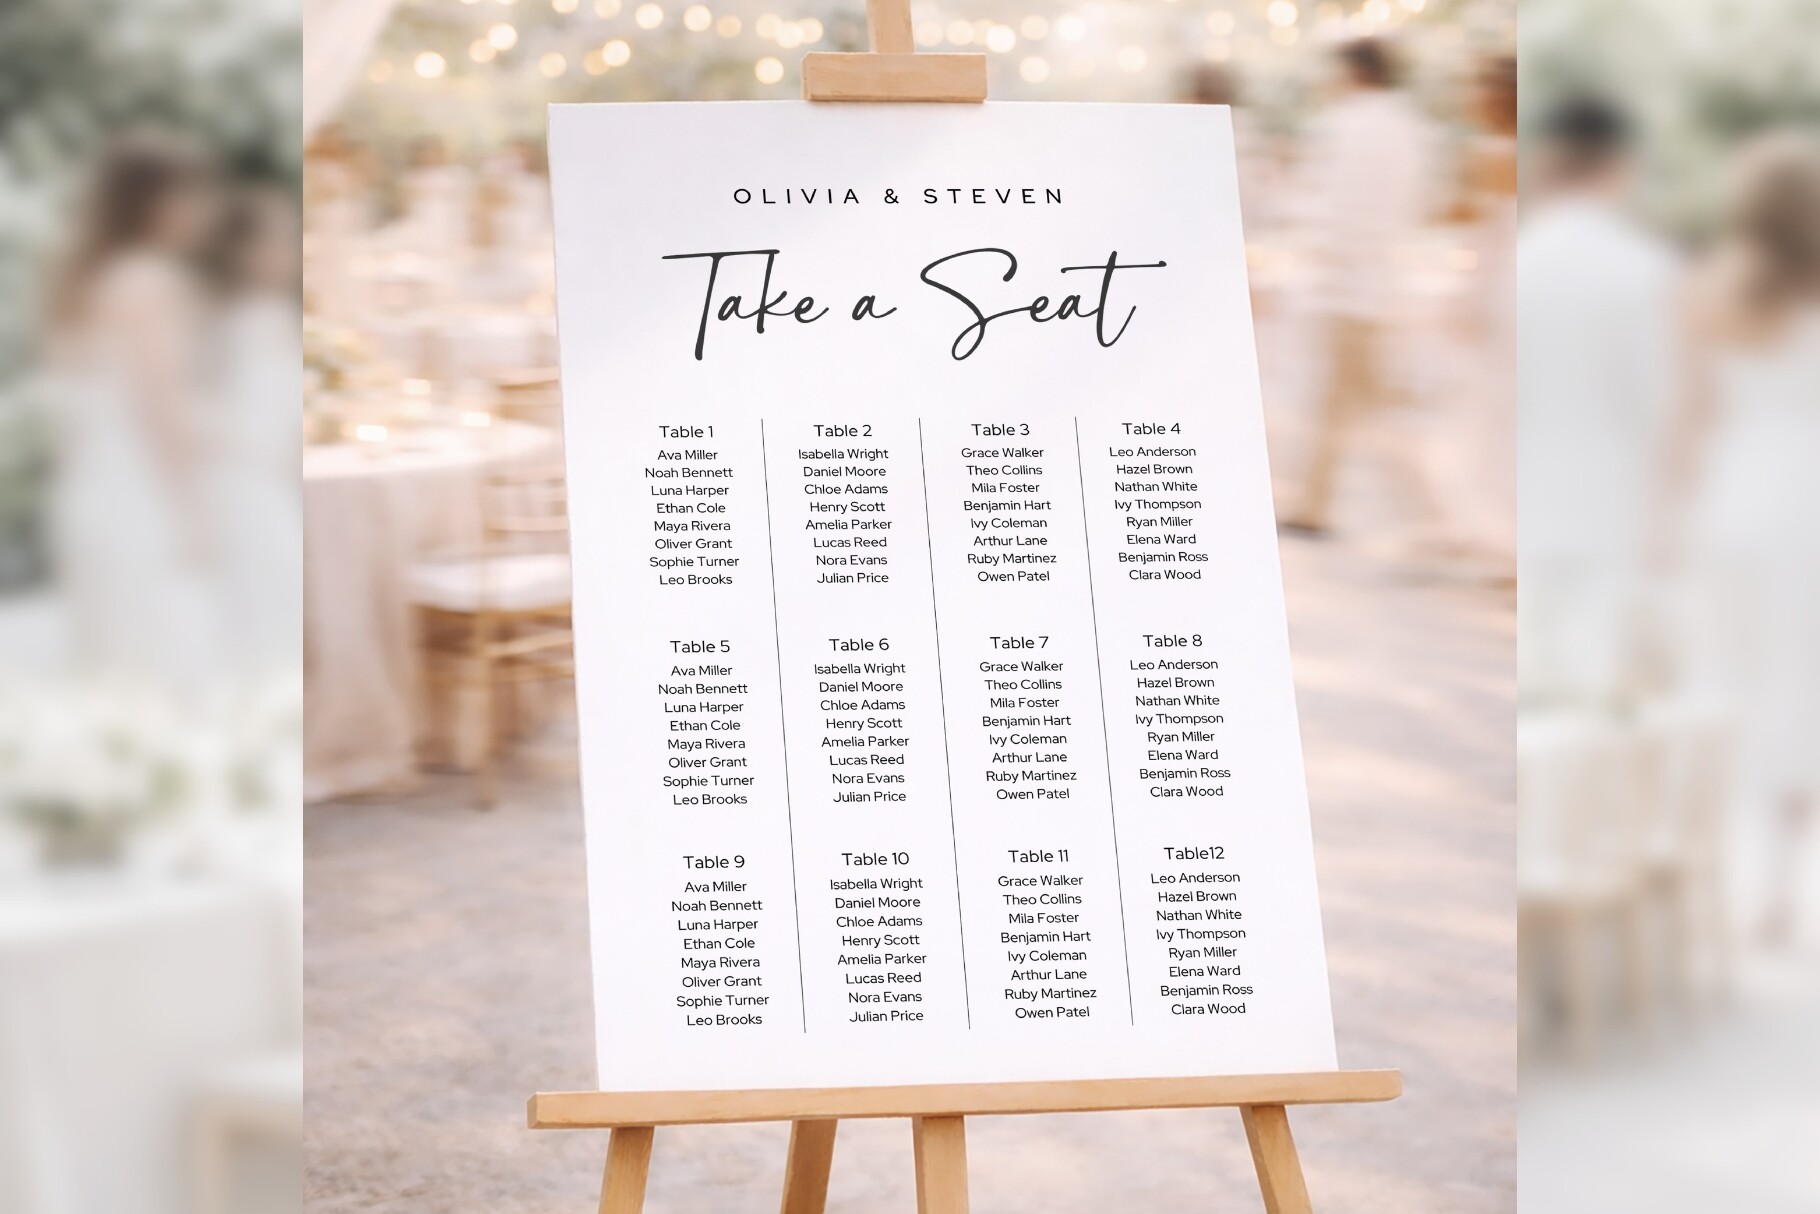 OLIVIA & STEVEN
Take a Seat
Table 1
Ava Miller
Noah Bennett
Luna Harper
Ethan Cole
Maya Rivera
Oliver Grant
Sophie Turner
Leo Brooks
Table 2
Isabella Wright
Daniel Moore
Chloe Adams
Henry Scott
Amelia Parker
Lucas Reed
Nora Evans
Julian Price
Table 3
Grace Walker
Theo Collins
Mila Foster
Benjamin Hart
Ivy Coleman
Arthur Lane
Ruby Martinez
Owen Patel
Table 4
Leo Anderson
Hazel Brown
Nathan White
Ivy Thompson
Ryan Miller
Elena Ward
Benjamin Ross
Clara Wood
Table 5
Ava Miller
Noah Bennett
Luna Harper
Ethan Cole
Maya Rivera
Oliver Grant
Sophie Turner
Leo Brooks
Table 6
Isabella Wright
Daniel Moore
Chloe Adams
Henry Scott
Amelia Parker
Lucas Reed
Nora Evans
Julian Price
Table 7
Grace Walker
Theo Collins
Mila Foster
Benjamin Hart
Ivy Coleman
Arthur Lane
Ruby Martinez
Owen Patel
Table 8
Leo Anderson
Hazel Brown
Nathan White
Ivy Thompson
Ryan Miller
Elena Ward
Benjamin Ross
Clara Wood
Table 9
Ava Miller
Noah Bennett
Luna Harper
Ethan Cole
Maya Rivera
Oliver Grant
Sophie Turner
Leo Brooks
Table 10
Isabella Wright
Daniel Moore
Chloe Adams
Henry Scott
Amelia Parker
Lucas Reed
Nora Evans
Julian Price
Table 11
Grace Walker
Theo Collins
Mila Foster
Benjamin Hart
Ivy Coleman
Arthur Lane
Ruby Martinez
Owen Patel
Table12
Leo Anderson
Hazel Brown
Nathan White
Ivy Thompson
Ryan Miller
Elena Ward
Benjamin Ross
Clara Wood